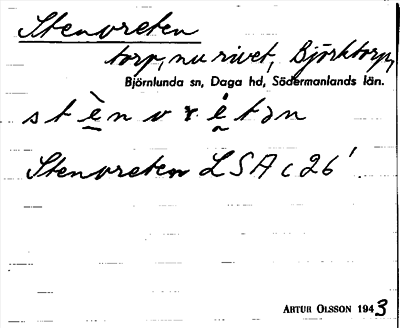 Stenvreten
torp, nu rivet, Björktorp,
Björnlunda sn, Daga hd, Södermanlands län.
stè̱nvrė̱tən
Stenvreten LSA c 26'
ARTUR OLSSON 1943